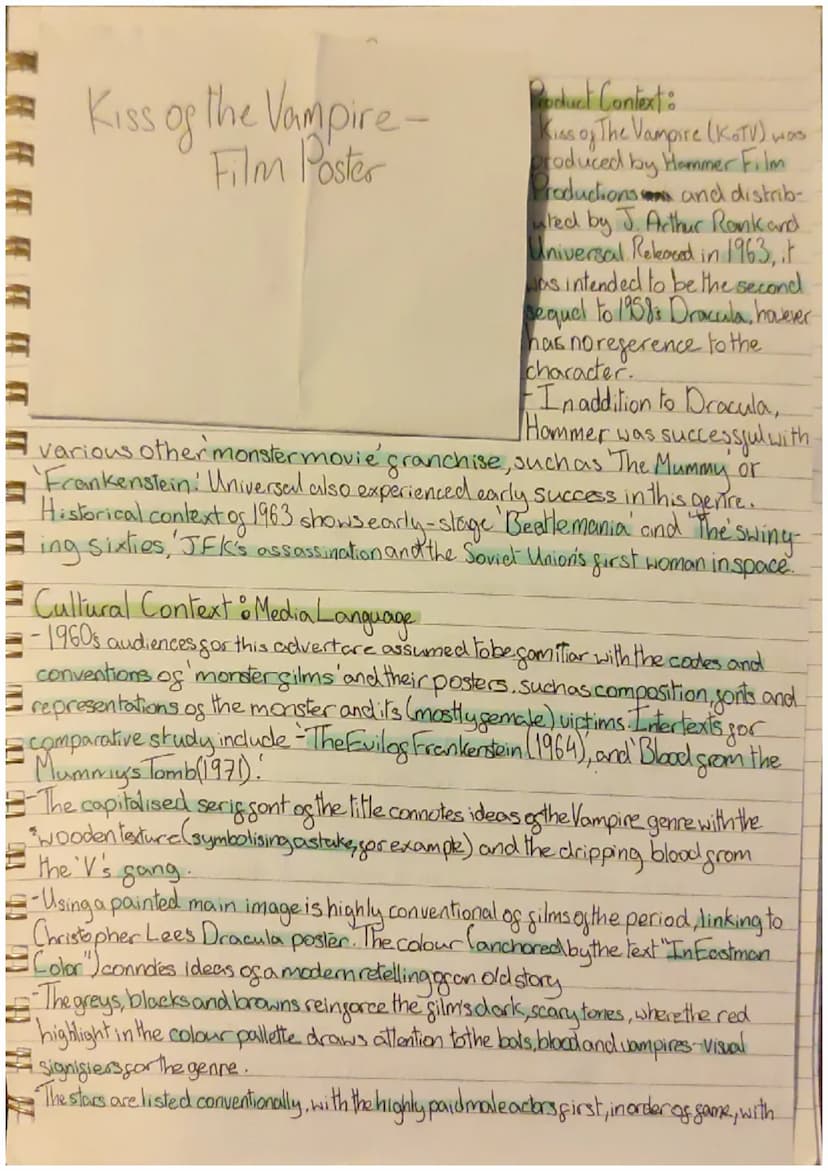 Kiss of the Vampire –
Film Poster
Product Context:
Kiss of The Vampire (KoTV) was
produced by Hammer Film
Productions and distrib-
uted by J. Arthur Rank and
Universal. Released in 1963, it
was intended to be the second
sequel to 1958's Dracula, however
has no reference to the
character.
- In addition to Dracula,
Hammer was successful with
various other 'monster movie' franchise, such as 'The Mummy' or
'Frankenstein.' Universal also experienced early success in this genre.
Historical context of 1963 shows early-stage 'Beatlemania' and 'The swing-
ing sixties,' JFK's assassination and the Soviet Union's first woman in space.
Cultural Context: Media Language
- 1960s audiences for this advert are assumed to be familiar with the codes and
conventions of 'monster films' and their posters. such as composition, fonts and
representations of the monster and its (mostly female) victims. Intertexts for
comparative study include - 'The Evil of Frankenstein (1964)', and 'Blood from the
Mummy's Tomb (1971).'
- The capitalised serif font of the title connotes ideas of the Vampire genre with the
wooden texture (symbolising a stake, for example) and the dripping blood from
the 'V's fang.
- Using a painted main image is highly conventional of films of the period, linking to
Christopher Lee's Dracula poster. The colour (anchored by the text "In Eastman
Color") connotes ideas of a modern retelling of an old story
- The greys, blacks and browns reinforce the film's dark, scary tones, where the red
highlight in the colour pallette draws attention to the bats, blood and vampires - visual
signifiers for the genre.
- The stars are listed conventionally, with the highly paid male actors first, in order of fame, with